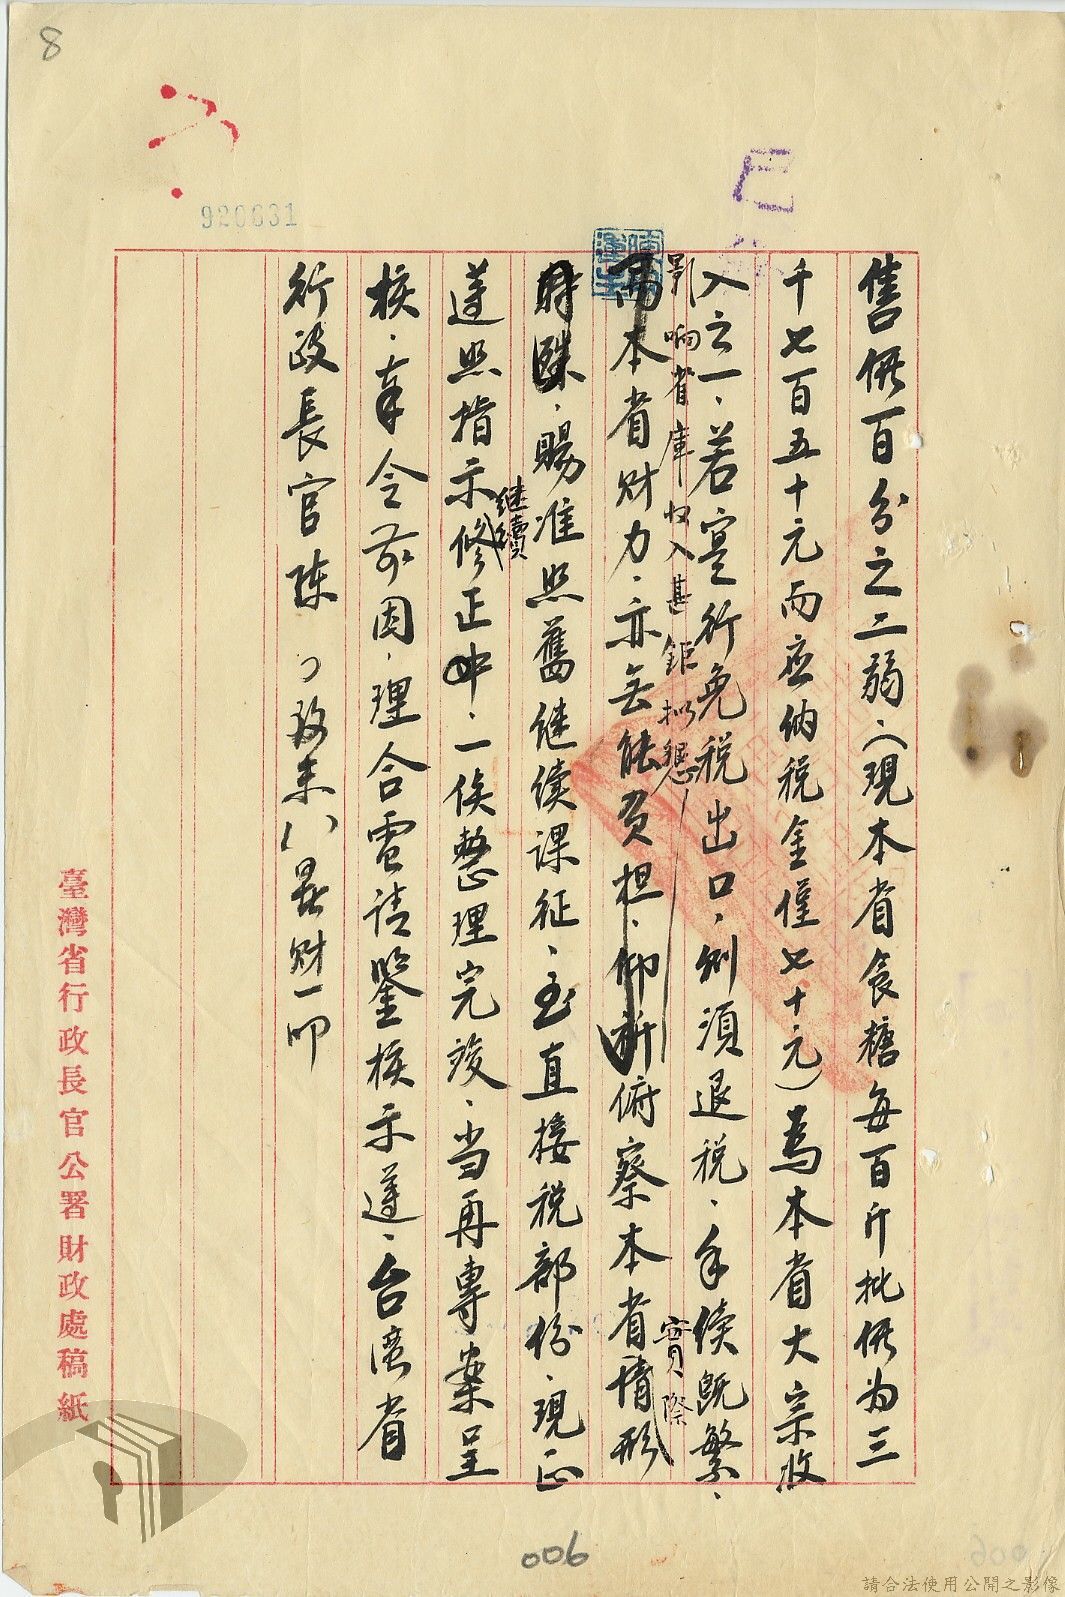 8
920631
已
售價百分之二弱、(現本省食糖每百斤批價为三
千七百五十元而应納税金僅七十元)為本省大宗收
入之一、若寔行免税出口，則須退税、手续既繁、
影响省庫收入甚鉅拟懇
實際
而本省財力、亦無能負担、仰祈俯察本省情形
賜准照舊继续课征、至直接税部份、現正
继續
遵照指示修正中、一俟整理完竣、当再專案呈
核、奉令前因，理合電請鑒核示遵、台湾省
行政長官陳 叩
財一印
臺灣省行政長官公署財政處稿紙
006
請合法使用公開之影像